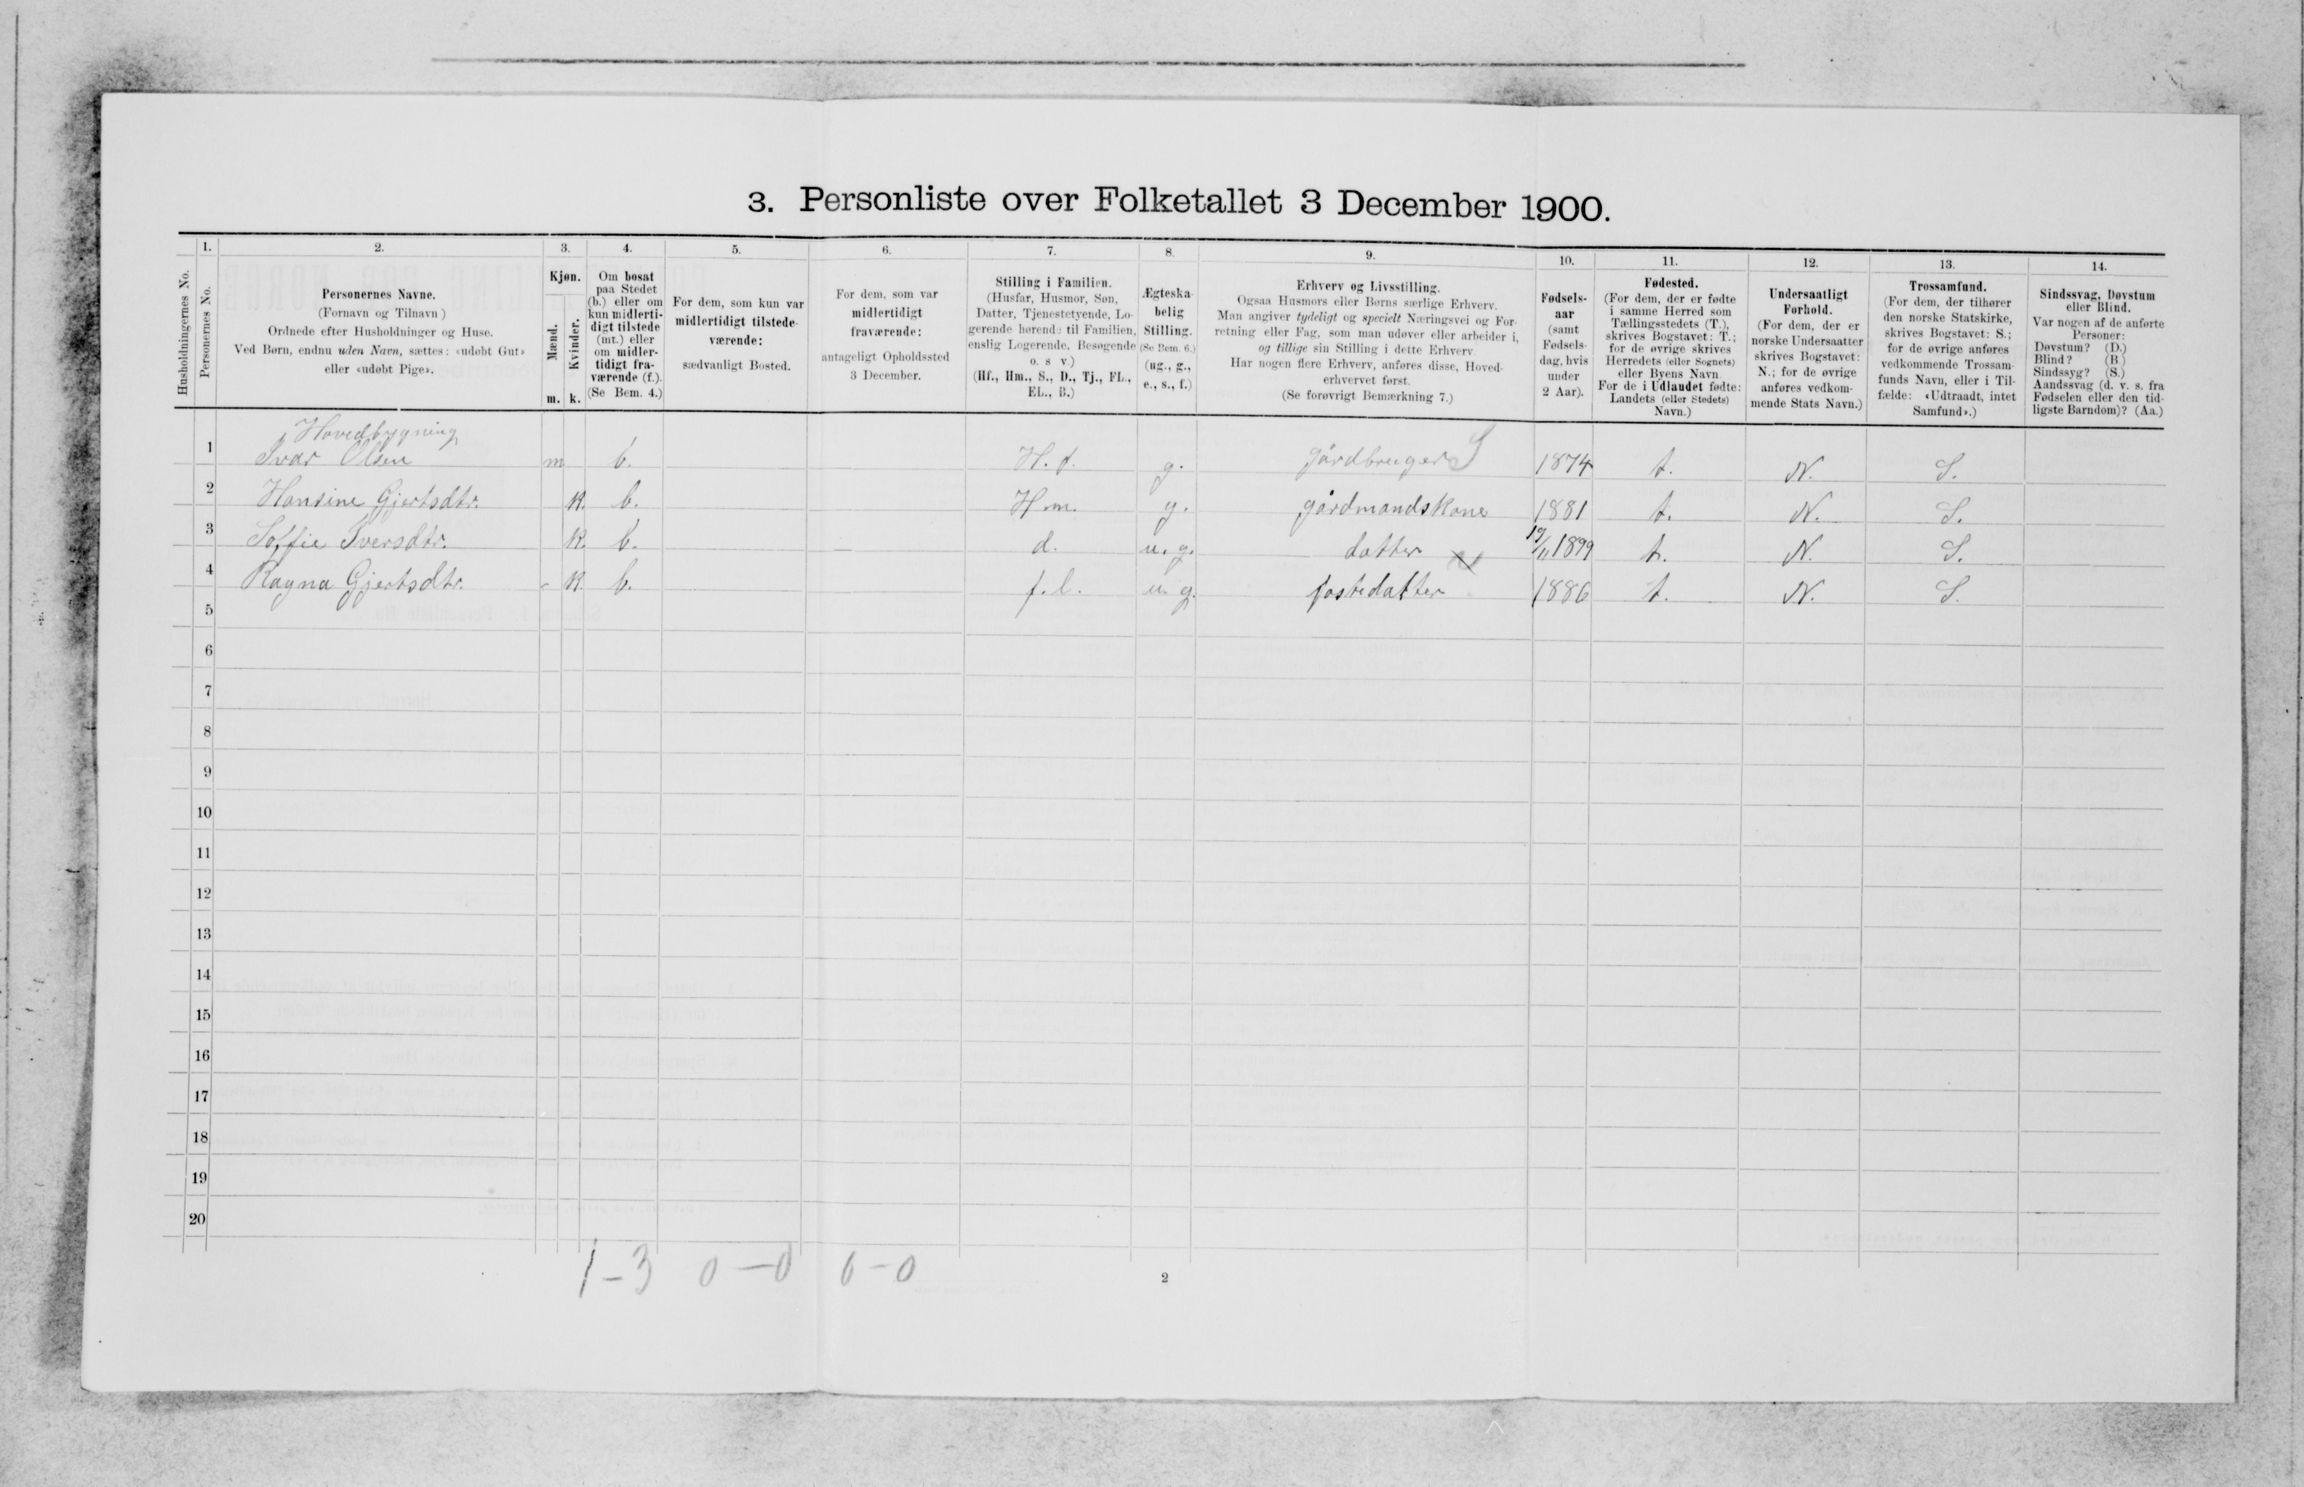 3. Personliste over Folketallet 3 December 1900.
1. 2. 3. 4. 5. 6. 7. 8. 9. 10. 11. 12. 13. 14.
Husholdningernes No.
Personernes No.
Personernes Navne.
(Fornavn og Tilnavn)
Ordnede efter Husholdninger og Huse.
Ved Børn, endnu uden Navn, sættes: «udøbt Gut»
eller «udøbt Pige».
Kjøn.
Mænd.
Kvinder.
m. k.
Om bosat
paa Stedet
(b.) eller om
kun midlerti-
digt tilstede
(mt.) eller
om midler-
tidigt fra-
værende (f.).
(Se Bem. 4.)
For dem, som kun var
midlertidigt tilstede-
værende:
sædvanligt Bosted.
For dem, som var
midlertidigt
fraværende:
antageligt Opholdssted
3 December.
Stilling i Familien.
(Husfar, Husmor, Søn,
Datter, Tjenestetyende, Lo-
gerende hørende til Familien,
enslig Logerende, Besøgende
o. s v.)
(Hf., Hm., S., D., Tj., FL.,
EL., B.)
Ægteska-
belig
Stilling.
(Se Bem. 6.)
(ug., g.,
e., s., f.)
Erhverv og Livsstilling.
Ogsaa Husmors eller Børns særlige Erhverv.
Man angiver tydeligt og specielt Næringsvei og For-
retning eller Fag, som man udøver eller arbeider i,
og tillige sin Stilling i dette Erhverv.
Har nogen flere Erhverv, anføres disse, Hoved-
erhvervet først.
(Se forøvrigt Bemærkning 7.)
Fødsels-
aar
(samt
Fødsels-
dag, hvis
under
2 Aar).
Fødested.
(For dem, der er fødte
i samme Herred som
Tællingsstedets (T.),
skrives Bogstavet: T.;
for de øvrige skrives
Herredets (eller Sognets)
eller Byens Navn
For de i Udlandet fødte:
Landets (eller Stedets)
Navn.)
Undersaatligt
Forhold.
(For dem, der er
norske Undersaatter
skrives Bogstavet:
N.; for de øvrige
anføres vedkom-
mende Stats Navn.)
Trossamfund.
(For dem, der tilhører
den norske Statskirke,
skrives Bogstavet: S.;
for de øvrige anføres
vedkommende Trossam-
funds Navn, eller i Til-
fælde: «Udtraadt, intet
Samfund».)
Sindssvag, Døvstum
eller Blind.
Var nogen af de anførte
Personer:
Døvstum? (D.)
Blind? (B.)
Sindssyg? (S.)
Aandssvag (d. v. s. fra
Fødselen eller den tid-
ligste Barndom)? (Aa.)
Hovedbygning
1 Ivar Olsen m b. H. f. g. gårdbruger S 1874 t. N. S.
2 Hansine Gjertsdtr. k. b. H.m. g. gårdmandskone 1881 t. N. S.
3 Soffie Iversdtr. k. b. d. u. g. datter 19/11 1899 t. N. S.
4 Ragna Gjertsdtr. - k. b. f.l. u. g. fostedatter 1886 t. N. S.
5
6
7
8
9
10
11
12
13
14
15
16
17
18
19
20
1-3 0-0 0-0
2